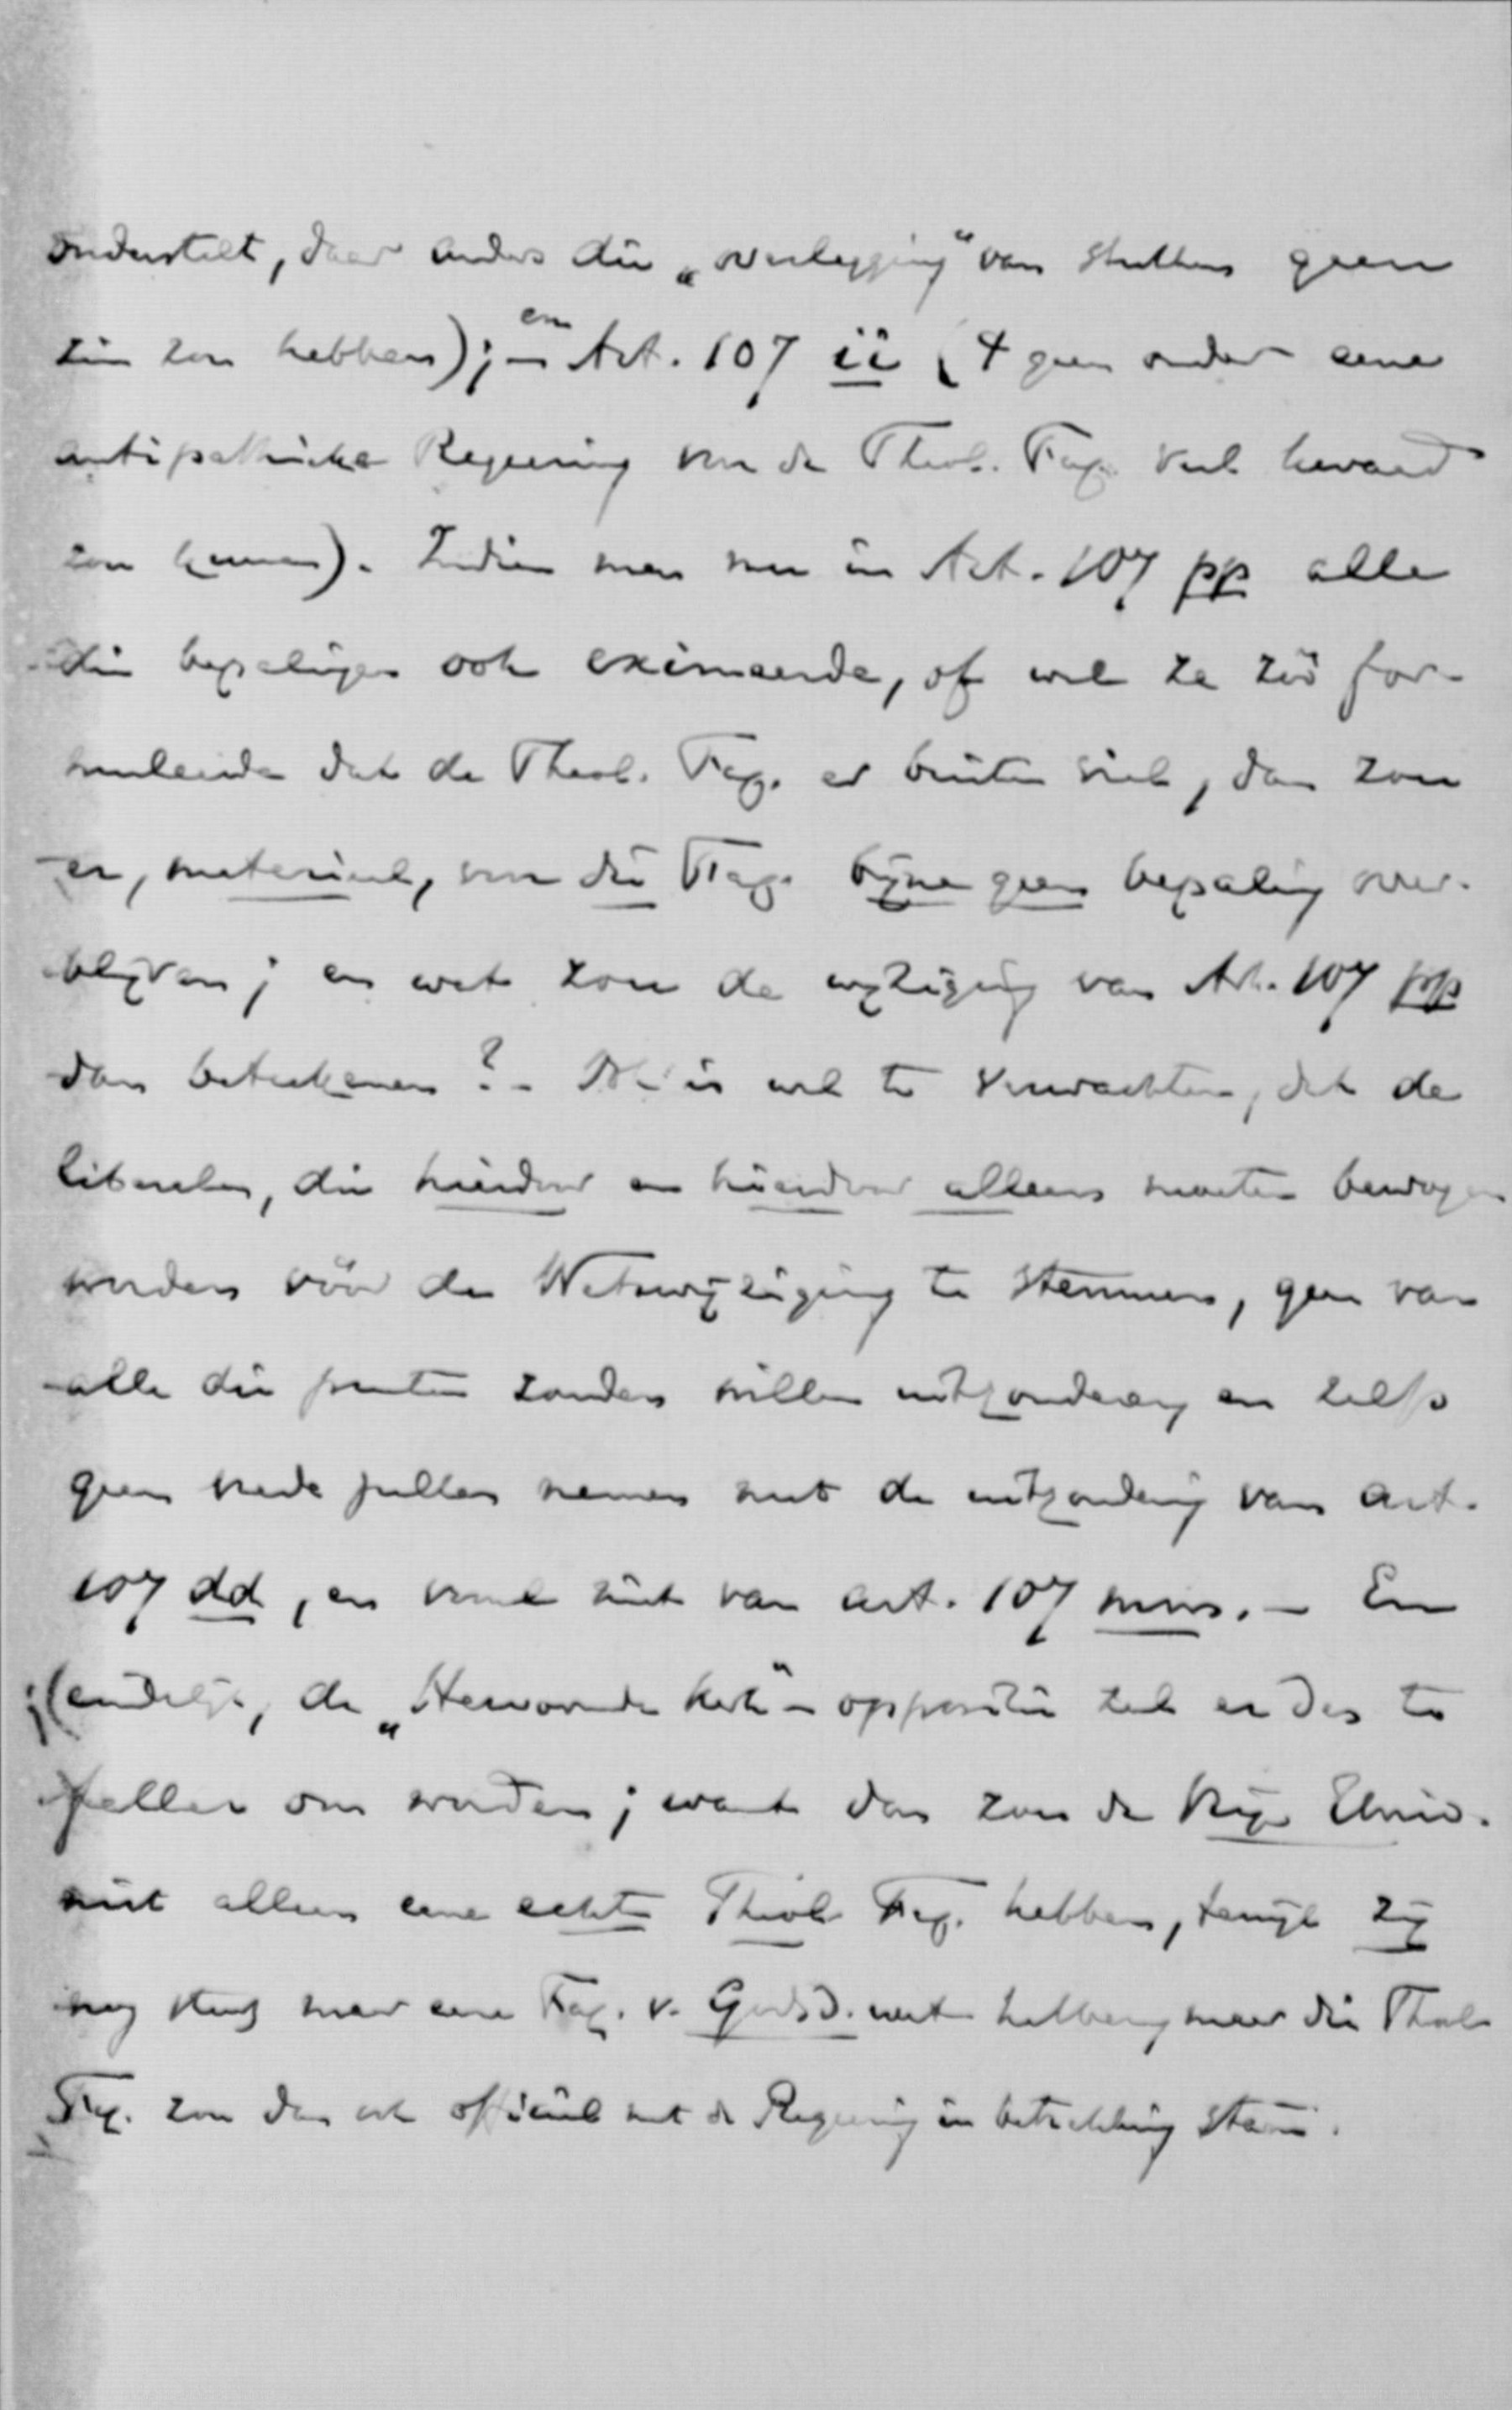 onderstelt, daar anders die „overlegging" van stukken geen
zin zou hebben); en Art. 107 ii (t geen onder eene
antipathieke Regeering voor de Theol. Fac. veel kwaad
zou kunnen). Indien men nu in Art. 107 pp alle
die bepalingen ook eximeerde, of wel ze zóó for-
muleerde dat de Theol. Fac. er buiten viel, dan zou
er, materieel, voor die Fac. bijna geen bepaling over-
blijven; en wat zou de wijziging van Art. 107 pp
dan beteekenen? - is wel te verwachten, dat de
liberalen, die hierdoor en hierdoor alleen moeten bewogen
worden vóór de Wetswijziging te stemmen, geen van
alle die punten zouden willen uitzonderen en zelfs
geen vrede zullen nemen met de uitzondering van art.
107 dd, en vooral niet van art. 107 mm. - En
(eindelijk, de „Hervormde Kerk"-oppositie zal er des te
feller om worden; want dan zou de Vrije Univ.
niet alleen eene echte Theol. Fac. hebben, terwijl zij
nog steeds maar eene Fac. v. Godsd. wet. hebben, maar die Theol.
Fac. zou dan ook officieel met de Regeering in betrekking staan.